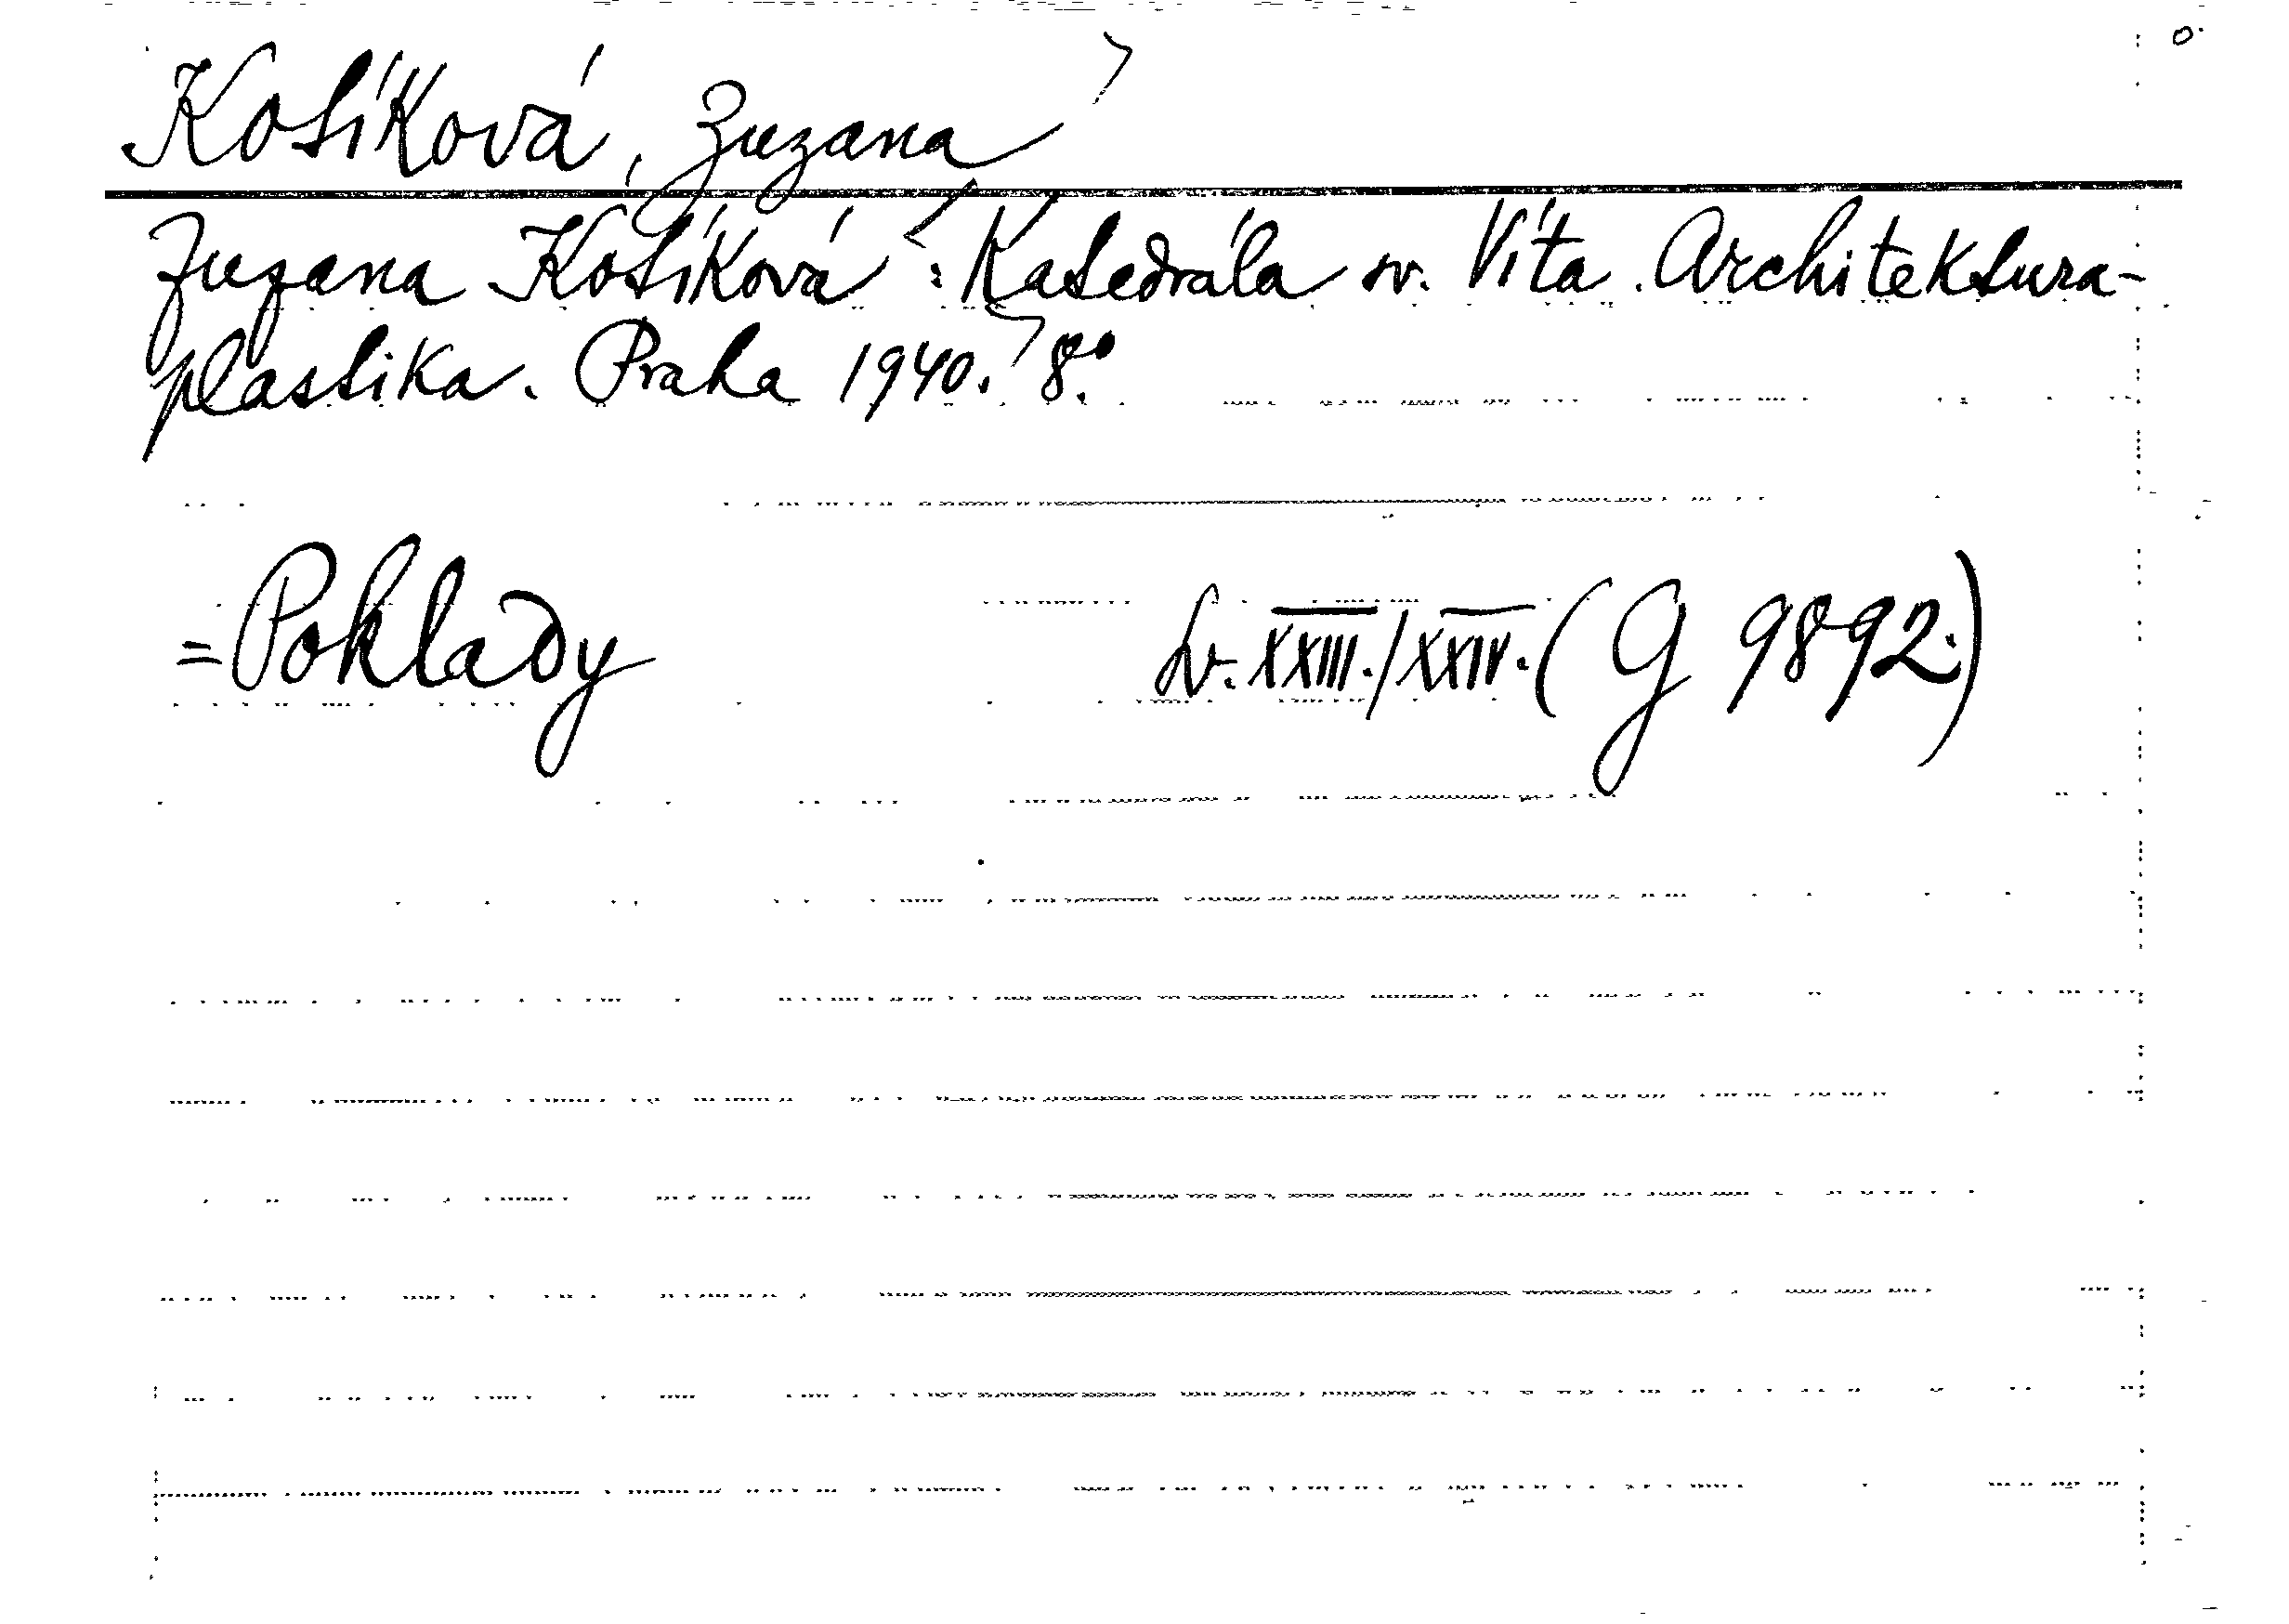 Kotíková, Zuzana
Zuzana Kotíková: Katedrála sv. Víta. Architektura-
plastika. Praha 1940. 8°.
=Poklady sv. XXIII./XXIV. (G 9892.)